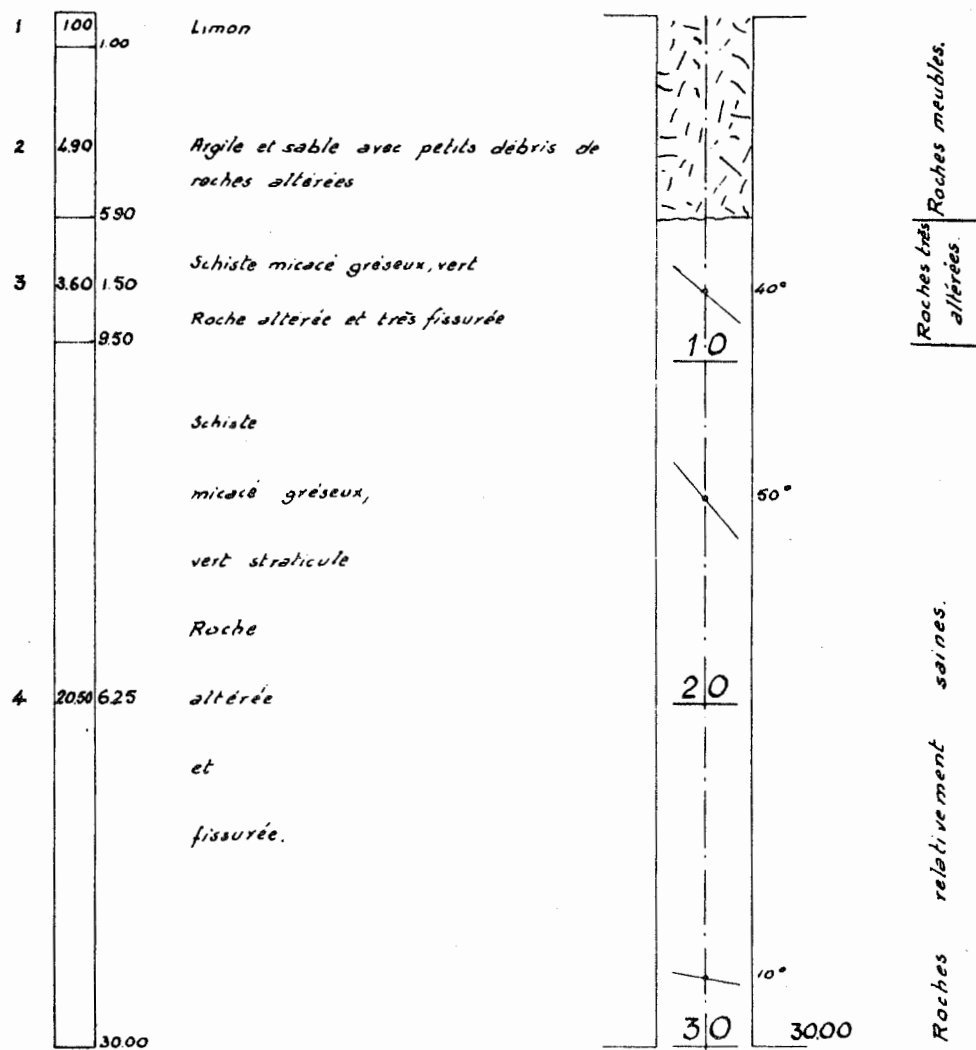 1 1.00 Limon
1.00
2 4.90 Argile et sable avec petits débris de
roches altérées
5.90
3 3.60 1.50 Schiste micacé gréseux, vert
Roche altérée et très fissurée
9.50
Schiste
micacé gréseux,
vert straticule
Roche
4 20.50 6.25 altérée
et
fissurée.
30.00
40°
10
50°
20
10°
30 30.00
Roches meubles.
Roches très
altérées.
Roches relativement saines.